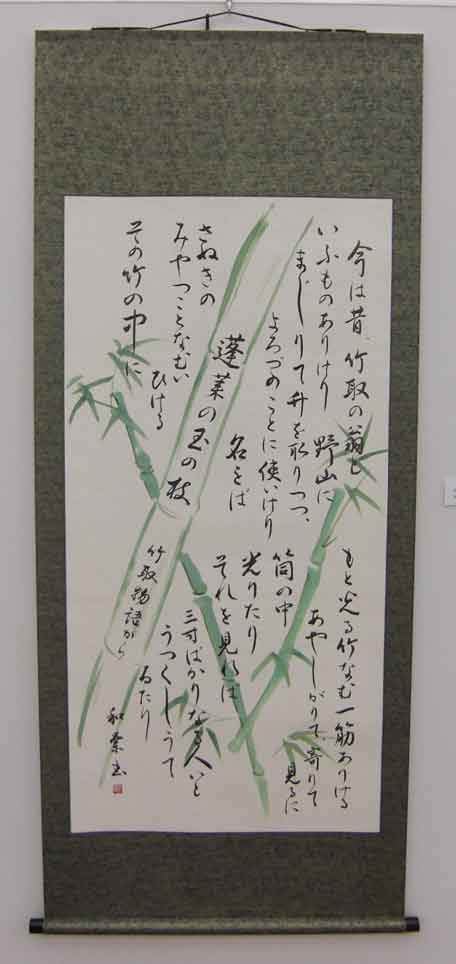 今は昔、竹取の翁と
いふものありけり
野山に
まじりて竹を取りつつ、
よろづのことに使いけり
名をば
さぬきの
みやつことなむい
ひける
その竹の中に
もと光る竹なむ一筋ありける
あやしがりて、寄りて
見るに
筒の中
光りたり
それを見れば
三寸ばかりなる人いと
うつくしうて
ゐたり
蓬莱の玉の枝
竹取物語から